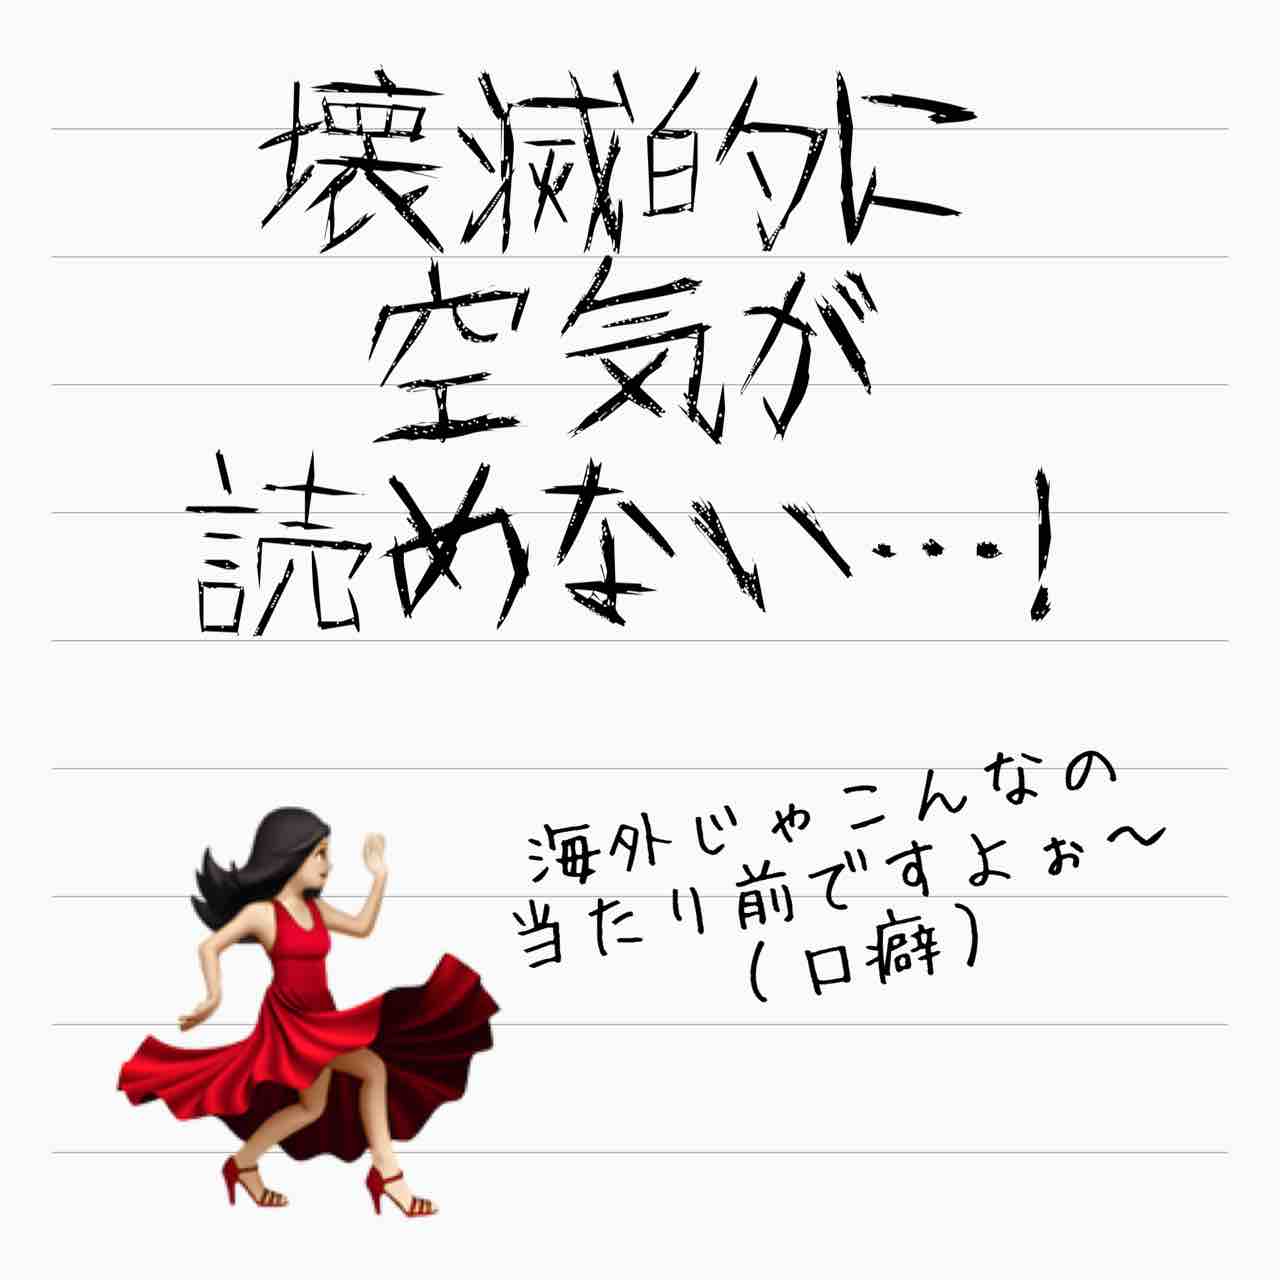 壊滅的に
空気が
読めない…!
海外じゃこんなの
当たり前ですよぉ〜
(口癖)